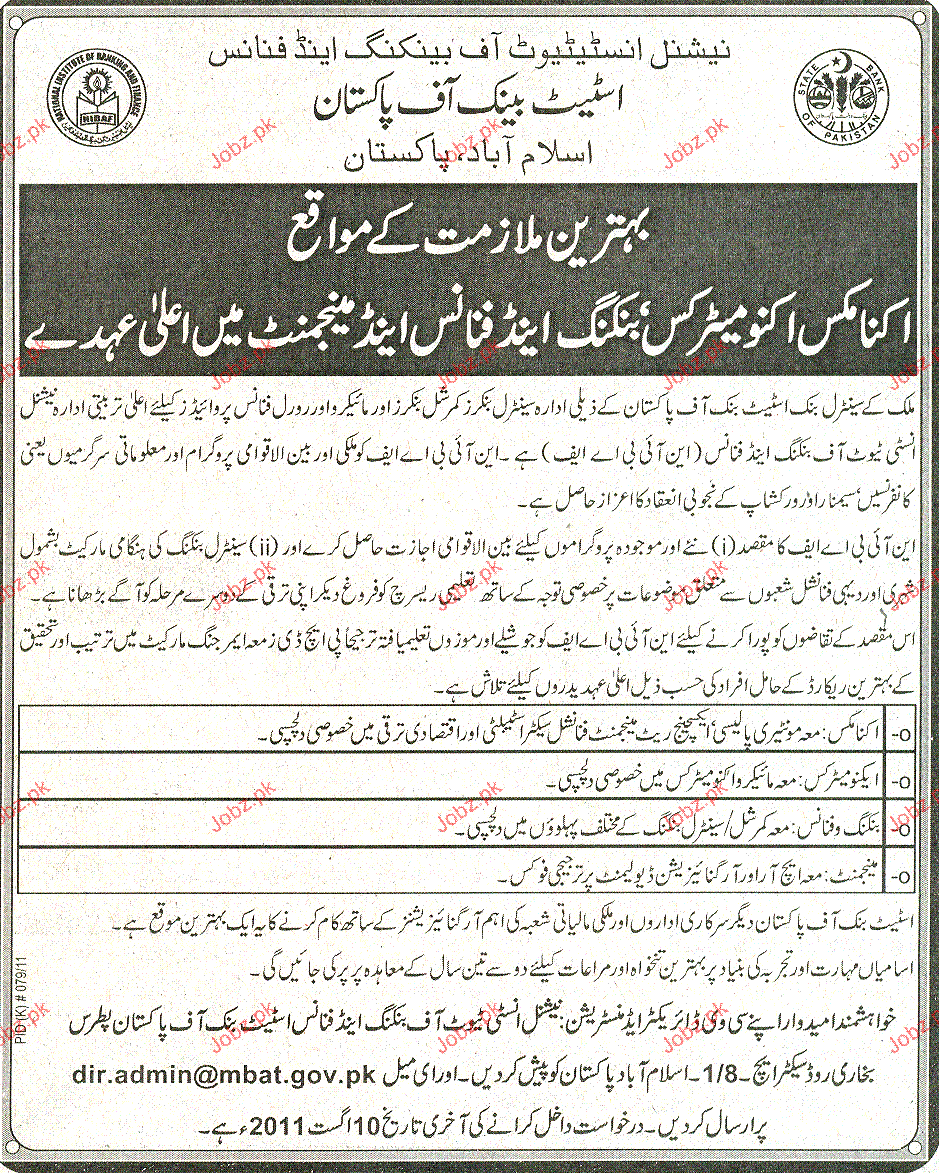 نیشنل انسٹیٹیوٹ آف بینکنگ اینڈ فنانس
اسٹیٹ بینک آف پاکستان
اسلام آباد، پاکستان
NATIONAL INSTITUTE OF BANKING AND FINANCE
NIBAF
STATE BANK OF PAKISTAN
بہترین ملازمت کے مواقع
اکنامکس اکنومیٹرکس، بنکنگ اینڈ فنانس اینڈ مینجمنٹ میں اعلیٰ عہدے
ملک کے سینٹرل بنک اسٹیٹ بنک آف پاکستان کے ذیلی ادارہ سینٹرل بنکرز کمرشل بنکرز اور مائیکرو اور رورل فنانس پروائیڈز کیلئے اعلیٰ تربیتی ادارہ نیشنل
انسٹی ٹیوٹ آف بنکنگ اینڈ فنانس (این آئی بی اے ایف) ہے۔ این آئی بی اے ایف کو ملکی اور بین الاقوامی پروگرام اور معلوماتی سرگرمیوں یعنی
کانفرنسیں، سیمنار اور ورکشاپ کے بخوبی انعقاد کا اعزاز حاصل ہے۔
این آئی بی اے ایف کا مقصد (i) نئے اور موجودہ پروگراموں کیلئے بین الاقوامی اجازت حاصل کرے اور (ii) سینٹرل بنکنگ کی ہنگامی مارکیٹ بشمول
شہری اور دیہی فنانشل شعبوں سے متعلق موضوعات پر خصوصی توجہ کے ساتھ تعلیمی ریسرچ کو فروغ دیکر اپنی ترقی کے دوسرے مرحلہ کو آگے بڑھانا ہے۔
اس مقصد کے تقاضوں کو پورا کرنے کیلئے این آئی بی اے ایف کو جوشیلے اور موزوں تعلیمیافتہ ترجیحاً پی ایچ ڈی زمعہ ایمرجنگ مارکیٹ میں ترتیب اور تحقیق
کے بہترین ریکارڈ کے حامل افراد کی حسب ذیل اعلیٰ عہدیدروں کیلئے تلاش ہے۔
o- اکنامکس: معہ مونیٹری پالیسی، ایکسچینج ریٹ مینجمنٹ فنانشل سیکٹر اسٹیبلٹی اور اقتصادی ترقی میں خصوصی دلچسپی۔
o- ایکنومیٹرکس: معہ مائیکرو اکنومیٹرکس میں خصوصی دلچسپی۔
o- بنکنگ و فنانس: معہ کمرشل/سینٹرل بنکنگ کے مختلف پہلوؤں میں دلچسپی۔
o- مینجمنٹ: معہ ایچ آر اور آرگنائیزیشن ڈیولپمنٹ پر ترجیحی فوکس۔
اسٹیٹ بنک آف پاکستان دیگر سرکاری اداروں اور ملکی مالیاتی شعبہ کی اہم آرگنائیزیشنز کے ساتھ کام کرنے کا یہ ایک بہترین موقع ہے۔
اسامیاں مہارت اور تجربہ کی بنیاد پر بہترین تنخواہ اور مراعات کیلئے دو سے تین سال کے معاہدہ پر پر کی جائیں گی۔
خواہشمند امیدوار اپنے سی وی ڈائریکٹر ایڈمنسٹریشن: نیشنل انسٹی ٹیوٹ آف بنکنگ اینڈ فنانس اسٹیٹ بنک آف پاکستان پطرس
بخاری روڈ سیکٹر ایچ۔ 1/8۔ اسلام آباد پاکستان کو پیش کر دیں۔ اور ای میل dir.admin@mbat.gov.pk
پر ارسال کر دیں۔ درخواست داخل کرانے کی آخری تاریخ 10 اگست 2011ء ہے۔
PID (K) # 079/11
Jobz.pk